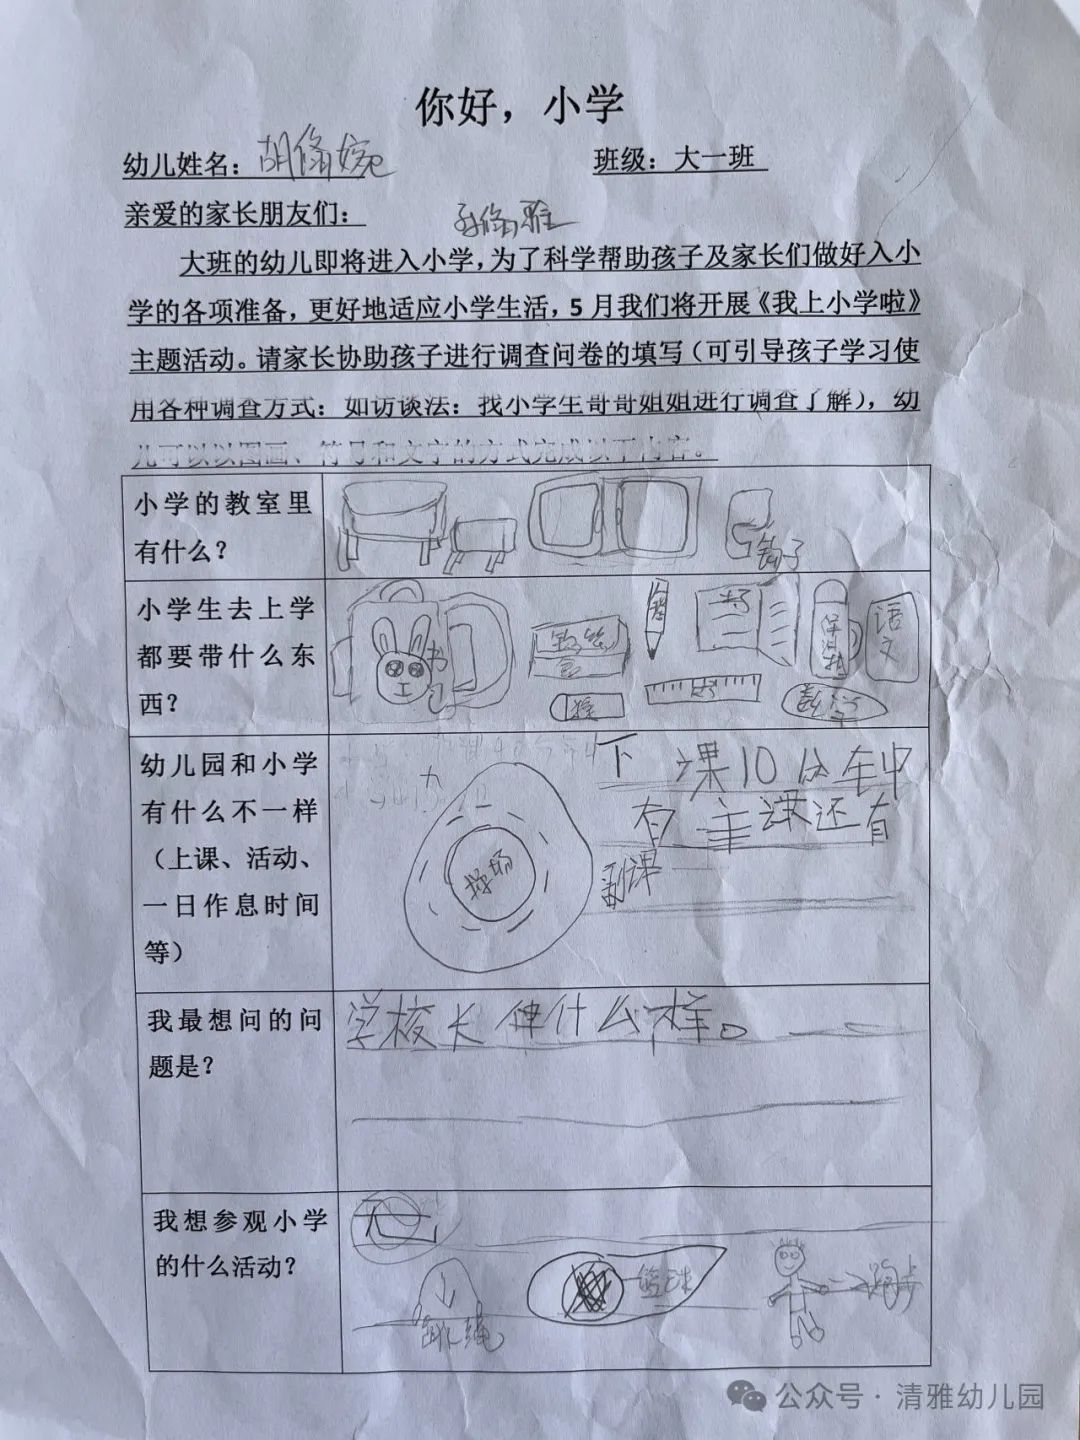 你好，小学
幼儿姓名：胡脩婉 班级：大一班
亲爱的家长朋友们：
大班的幼儿即将进入小学，为了科学帮助孩子及家长们做好入小
学的各项准备，更好地适应小学生活，5月我们将开展《我上小学啦》
主题活动。请家长协助孩子进行调查问卷的填写（可引导孩子学习使
用各种调查方式：如访谈法：找小学生哥哥姐姐进行调查了解），幼
儿可以以图画、符号和文字的方式完成以下内容。
小学的教室里
有什么？
小学生去上学
都要带什么东
西？
书
包
尺
语
文
数学
幼儿园和小学
有什么不一样
（上课、活动、
一日作息时间
等）
操场
下课10分钟
有主课还有
副课
我最想问的问
题是？
学校长什么样。
我想参观小学
的什么活动？
跳绳
篮球
跑步
公众号·清雅幼儿园